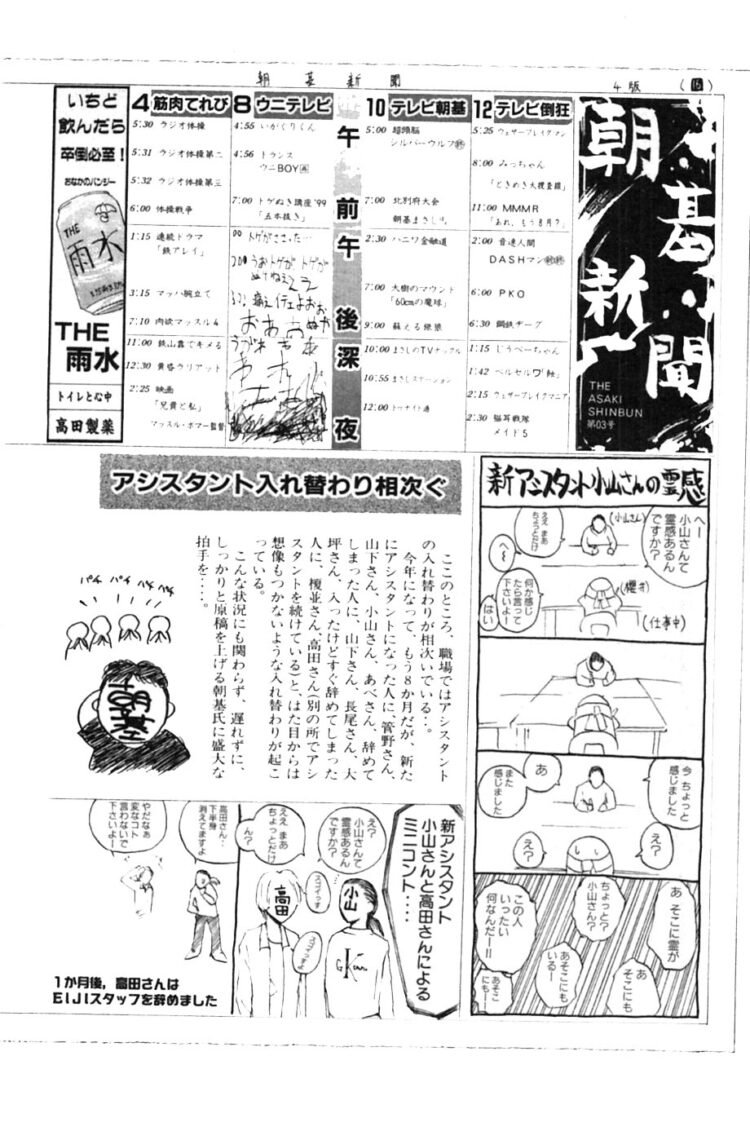 朝基新聞
4版
いちど
飲んだら
卒倒必至！
おなかのバンジー
THE
雨水
THE
雨水
トイレと心中
高田製薬
4 筋肉てれび
5:30 ラジオ体操
5:31 ラジオ体操第二
5:32 ラジオ体操第三
6:00 体操戦争
1:15 連続ドラマ
「鉄アレイ」
3:15 マッハ腕立て
7:10 肉欲マッスル4
11:00 鉄山靠でキメる
12:30 黄昏ラリアット
2:25 映画
「兄貴と私」
マッスル・ボマー監督
8 ウニテレビ
4:55 いがぐりくん
4:56 トランス
ウニBOY
7:00 トゲぬき講座'99
「五本抜き」
00 トゲがささった…
200 うおトゲが トゲが
ぬけねえ
午前
午後
深夜
10 テレビ朝基
5:00 超頭脳
シルバーウルフ
7:00 北別府大会
朝基まさし
2:30 ハニワ金融道
7:00 大樹のマウント
「60cmの魔球」
9:00 蘇える緑狼
10:00 まさしのTVタックル
10:55 まさしステーション
12:00 トゥナイト通
12 テレビ倒狂
5:25 ウェザーブレイクマン
8:00 みっちゃん
「ときめき大捜査線」
11:00 MMMR
「あれ、もう8月？」
2:00 音速人間
DASHマン
6:00 PKO
6:30 鋼鉄ヂーグ
1:15 じうべーちゃん
1:42 ベルセルワ
2:15 ウェザーブレイクマニア
2:30 猫耳戦隊
メイド5
朝基新聞
THE
ASAKI
SHINBUN
第03号
アシスタント入れ替わり相次ぐ
ここのところ、職場ではアシスタント
の入れ替わりが相次いでいる…。
今年になって、もう8か月だが、新た
にアシスタントになった人に、管野さん、
山下さん、小山さん、あべさん、辞めて
しまった人に、山下さん、長尾さん、大
坪さん、入ったけどすぐ辞めてしまった
人に、榎並さん、高田さん（別の所でアシ
スタントを続けている）と、はた目からは
想像もつかないような入れ替わりが起こ
っている。
こんな状況にも関わらず、遅れずに、
しっかりと原稿を上げる朝基氏に盛大な
拍手を…。
パチ
パチ
パチ
パチ
朝基
新アシスタント小山さんの霊感
へー
小山さんて
霊感あるん
ですか？
(小山さん)
ええ まあ
ちょっとだけ
へぇ
何か感じ
たら言って
下さいよー
はい
(仕事中)
今 ちょっと
感じました
え？
あ
また
感じました
え？
あ そこに霊が
ちょっと？
小山さん？
あ
そこにも
あそこにも
いるー
あそこ
にもー！
この人
いったい
何なんだー!!
新アシスタント
小山さんと高田さんによる
ミニコント‥‥
え？
小山さんて
霊感あるん
ですか？
スゴイっす
ええ まあ
ちょっとだけ
ん？
小山
高田
高田さん…
下半身
消えてますよ
やだなぁ
変なコト
言わないで
下さいよー
1か月後，高田さんは
EIJIスタッフを辞めました